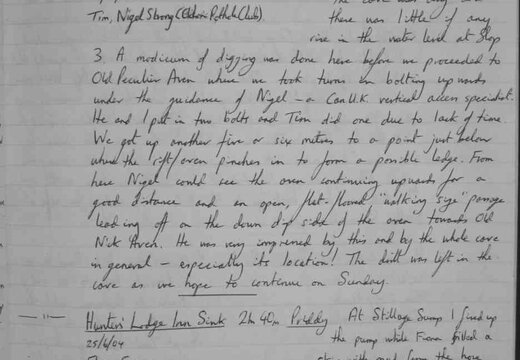 the cave was very
Tim, Nigel Strong (Eldon Pothole Club)
there was little if any
rise in the water level at Stop
3. A modicum of digging was done here before we proceeded to
Old Peculier Aven where we took turns in bolting upwards
under the guidance of Nigel - a Can U.K. vertical access specialist.
He and I put in two bolts and Tim did one due to lack of time.
We got up another five or six metres to a point just below
where the rift/aven pinches in to form a possible ledge. From
here Nigel could see the aven continuing upwards for a
good distance and an open, flat-floored "walking size" passage
leading off on the down dip side of the aven towards Old
Nick Aven. He was very impressed by this and by the whole cave
in general - especially its location! The drill was left in the
cave as we hope to continue on Sunday.
Hunters' Lodge Inn Sink 2h 40m Priddy At Stillage Sump I fired up
25/4/04 the pump while Fiona filled a